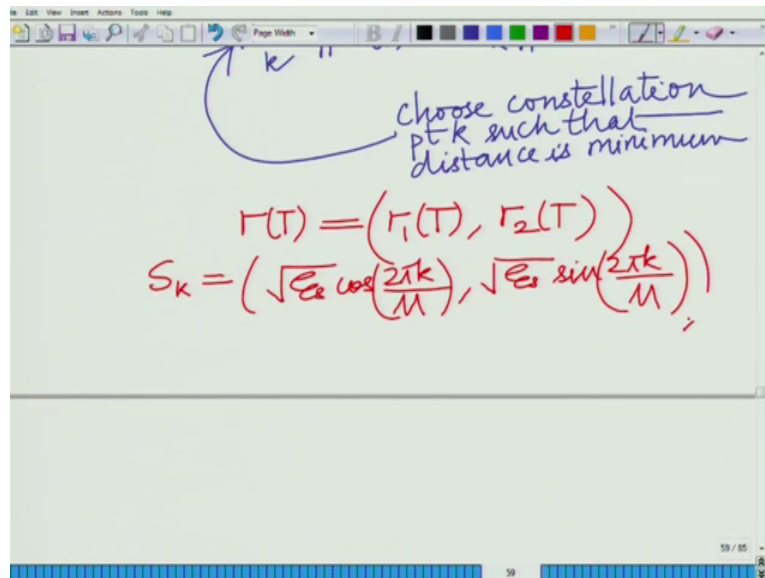 File Edit View Insert Actions Tools Help
Page Width B I
k
choose constellation
pt k such that
distance is minimum
r(T) = (r₁(T), r₂(T))
Sₖ = (√Es cos(2πk/M), √Es sin(2πk/M))
59 / 85
59